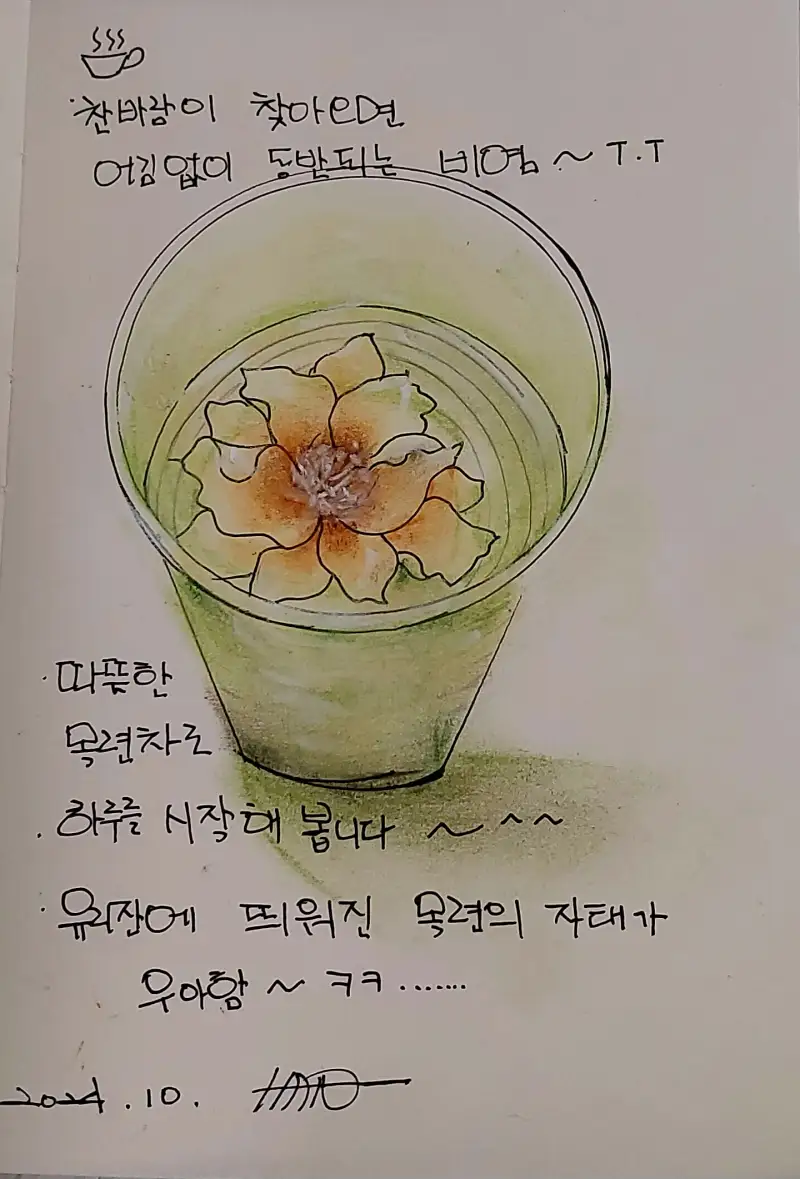 ·찬바람이 찾아오면
어김없이 동반되는 비염 ~ T.T
·따뜻한
목련차로
. 하루를 시작해 봅니다 ~ ^ ~
·유리잔에 띄워진 목련의 자태가
우아함 ~ ㅋㅋ .......
2024.10.